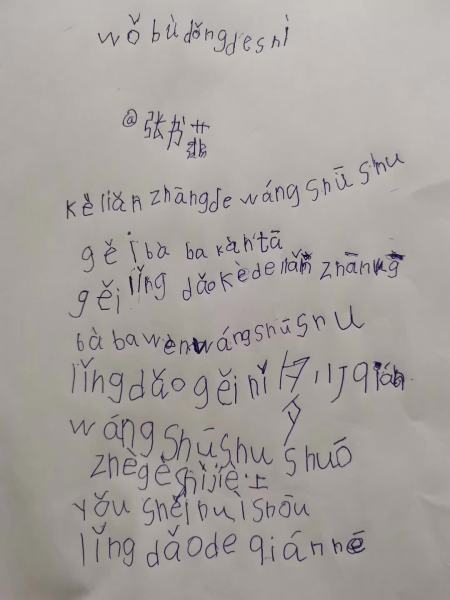 wǒ bù dǒngdeshì
@张书
kè liǎn zhāngde wáng shū shu
gěi bà ba kàn tā
gěi lǐng dǎo kède liǎn zhāng
bà ba wèn wáng shū shu
lǐng dǎo gěi nǐ qián
wáng shū shu shuō
zhègè shìjiè上
yǒu shéi huì shōu
lǐng dǎo de qián nē